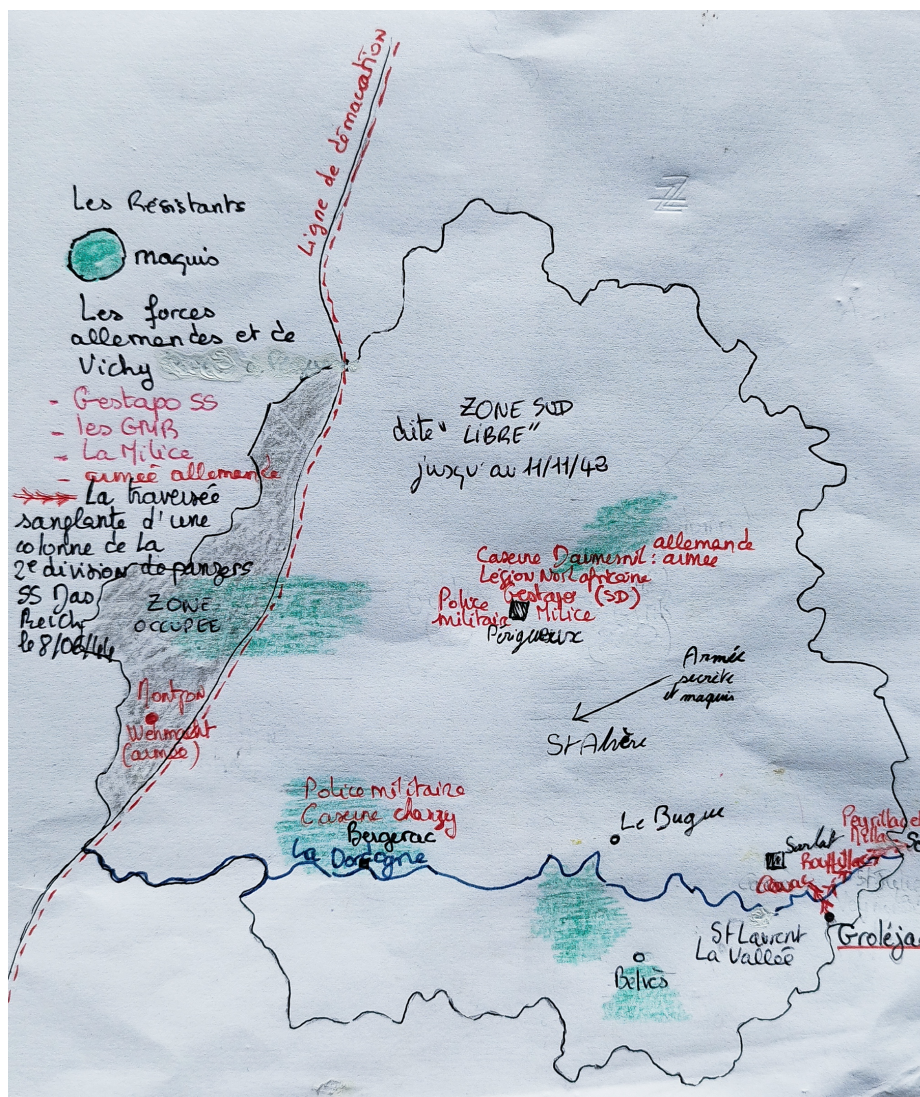 Ligne de démacation
Les Résistants
maquis
Les forces
allemandes et de
Vichy
- Gestapo SS
- les GMR
- La Milice
- armée allemande
La traversée
sanglante d'une
colonne de La
2e division de panzers
SS Das
Reich
le 8/06/44
ZONE SUD
dite "LIBRE"
jusqu'au 11/11/43
ZONE
OCCUPÉE
Caserne Daumesnil : armée allemande
Légion Nord africaine
Gestapo (SD)
Police militaire
Milice
Périgueux
Armée
secrète
et maquis
St Alvère
Montpon
Wehrmacht
(armée)
Police militaire
Caserne chanzy
Bergerac
La Dordogne
Le Bugue
Sarlat
Peyrillac et
Rouffillac
Carsac
St Laurent
La Vallée
Groléja
Belvès